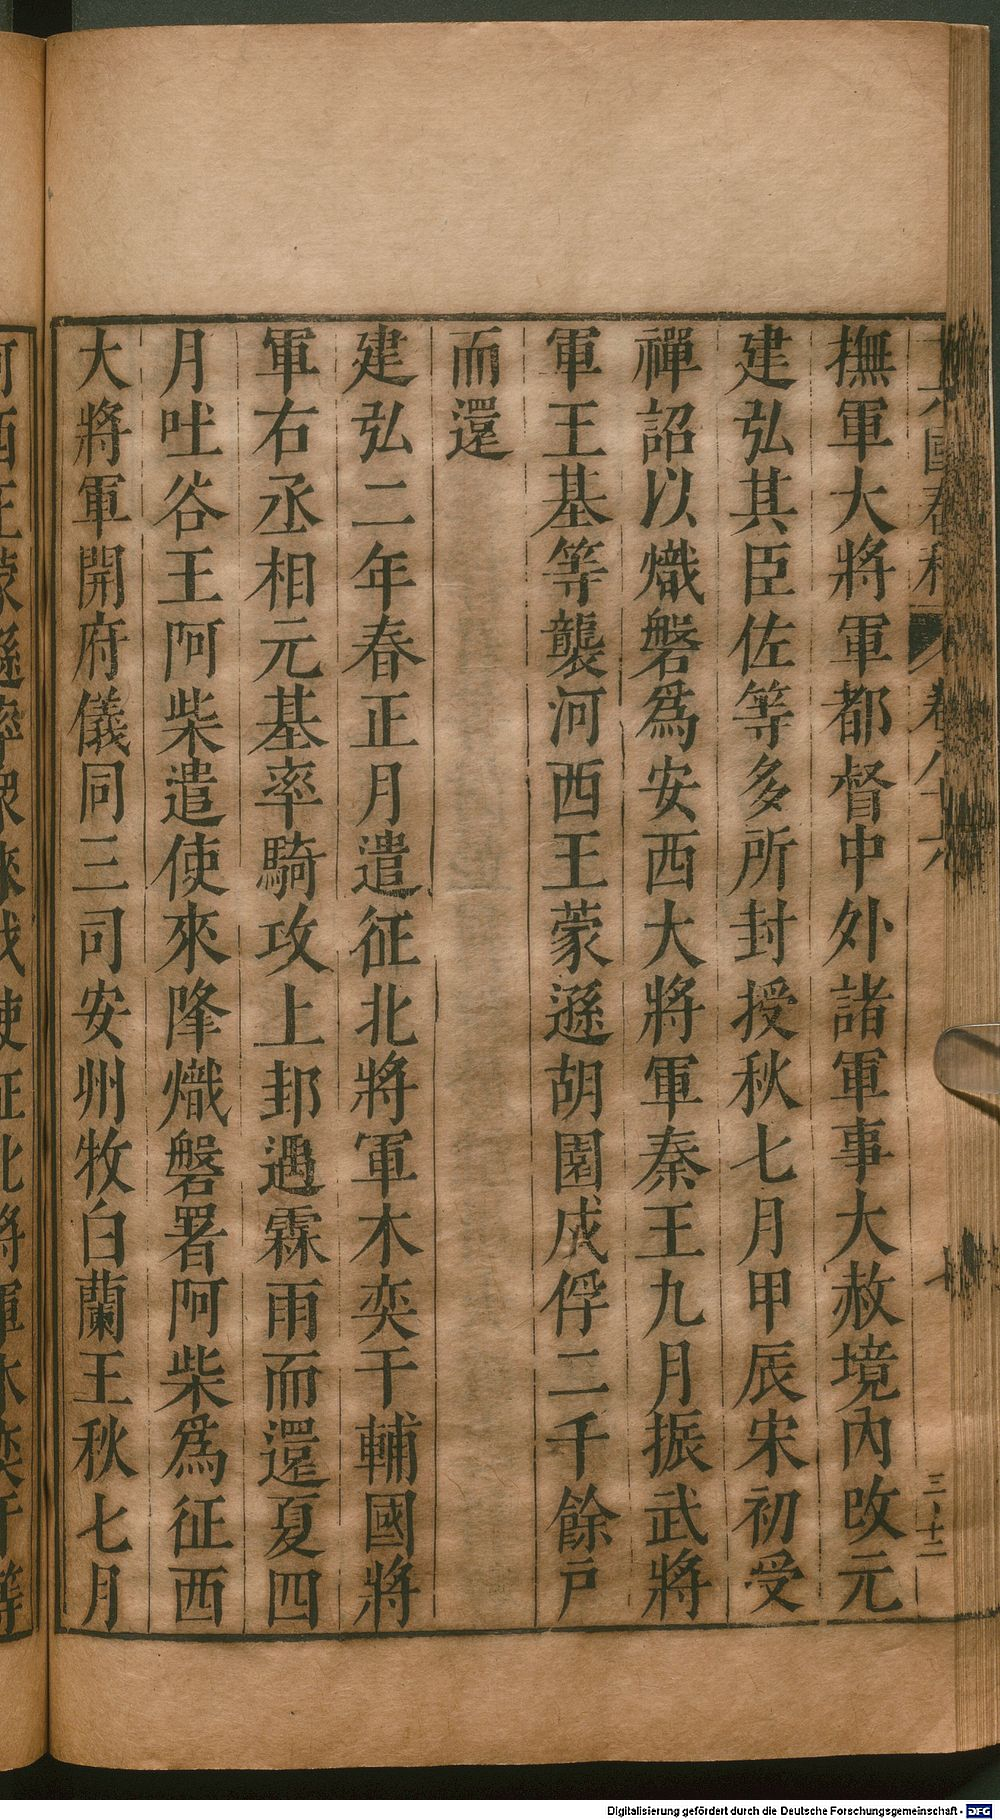 撫軍大將軍都督中外諸軍事大赦境內改元
建弘其臣佐等多所封授秋七月甲辰宋初受
禪詔以熾磐爲安西大將軍秦王九月振武將
軍王基等襲河西王蒙遜胡園戍俘二千餘戶
而還
建弘二年春正月遣征北將軍木奕干輔國將
軍右丞相元基率騎攻上邽遇霖雨而還夏四
月吐谷王阿柴遣使來降熾磐署阿柴爲征西
大將軍開府儀同三司安州牧白蘭王秋七月
Digitalisierung gefördert durch die Deutsche Forschungsgemeinschaft - DFG